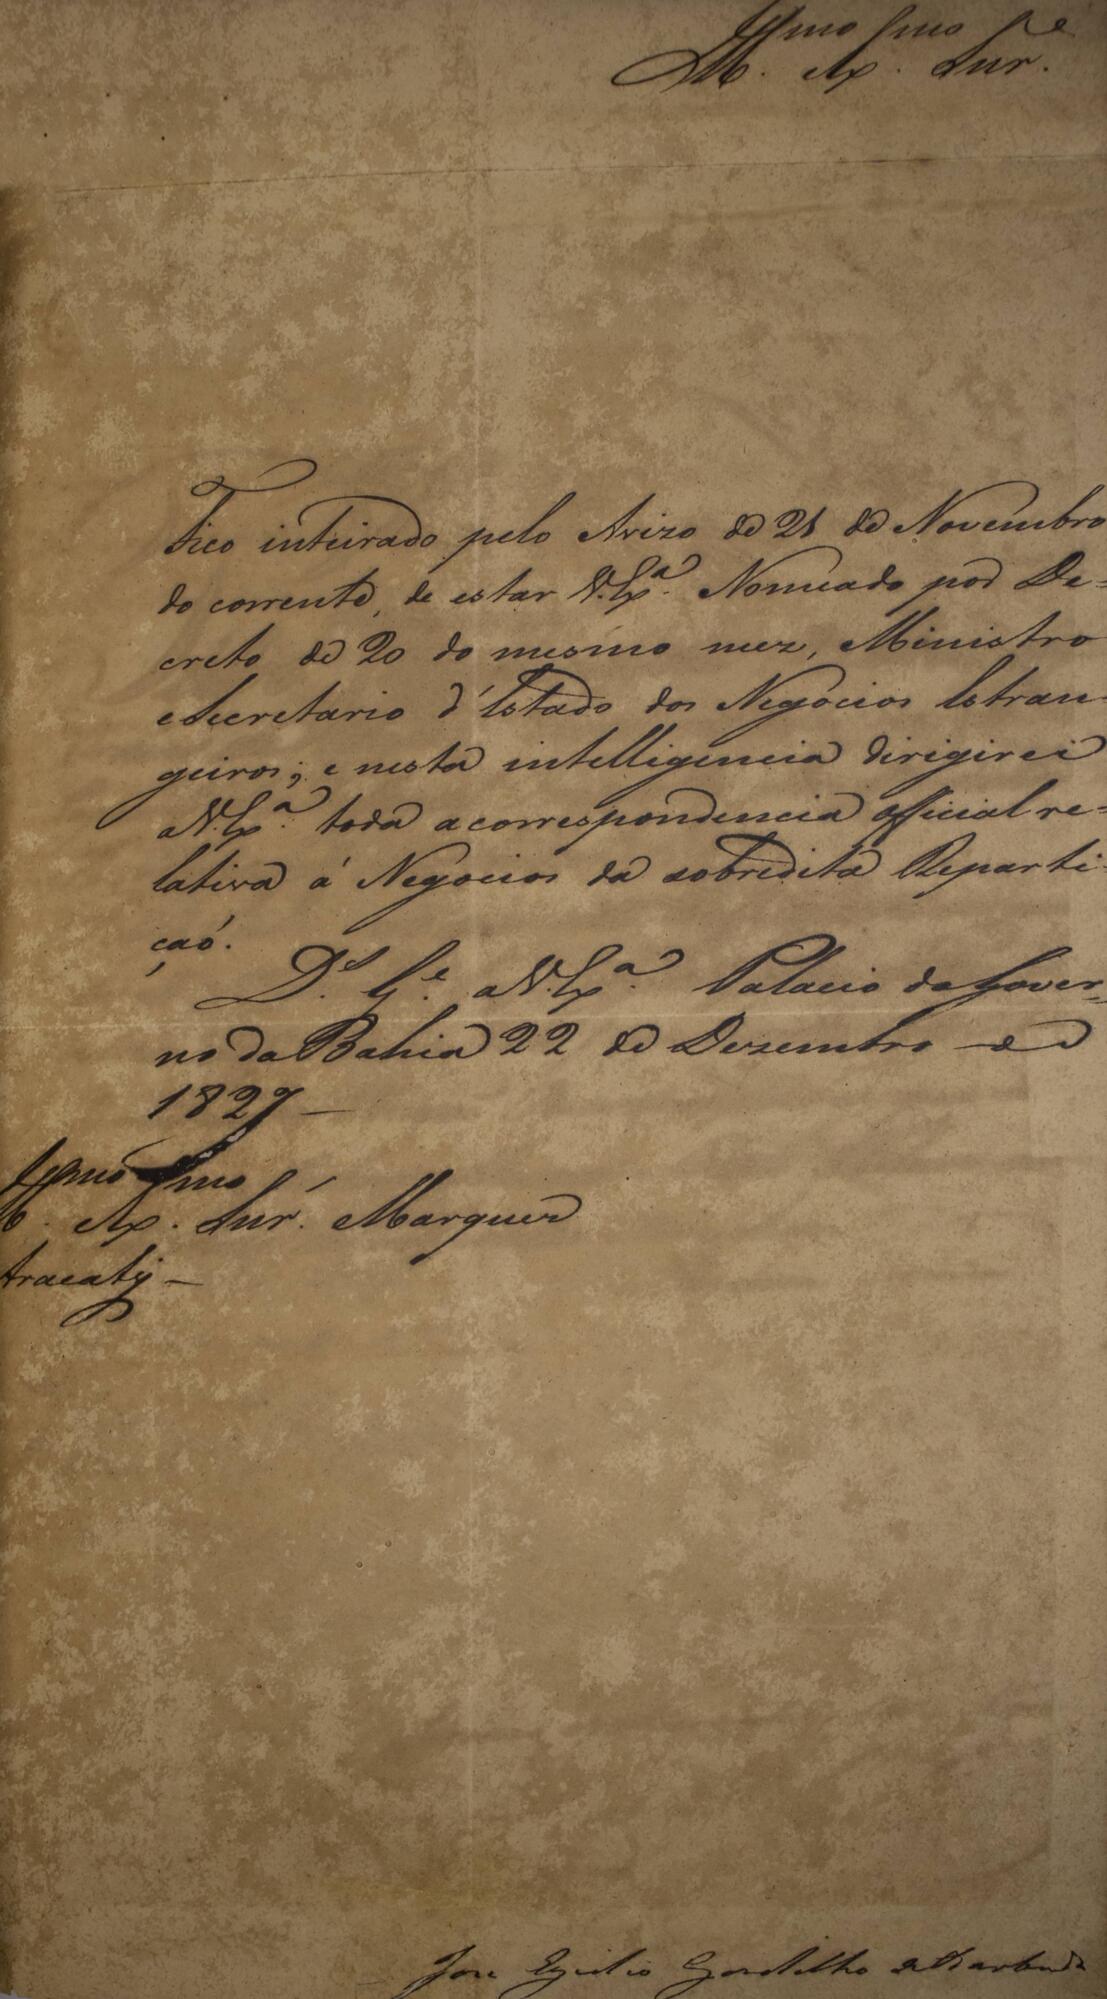 Illmo Exmo
Sñr.
Fico inteirado pelo Avizo de 21 de Novembro
do corrente, de estar V. Exª. Nomeado por De=
creto de 20 do mesmo mez, Ministro
e Secretario d'Estado dos Negocios Estran=
geiros; e nesta intelligencia dirigirei
a V. Exª. toda a correspondencia official re=
lativa á Negocios da sobredita Reparti=
çaõ.
Dˢ. Gᵉ. a V. Exª. Palacio do Gover=
no da Bahia 22 de Dezembro de
1827 —
Illmo Exmo
Sñr. Marquez
Aracaty —
José Egidio Gordilho de Barbuda